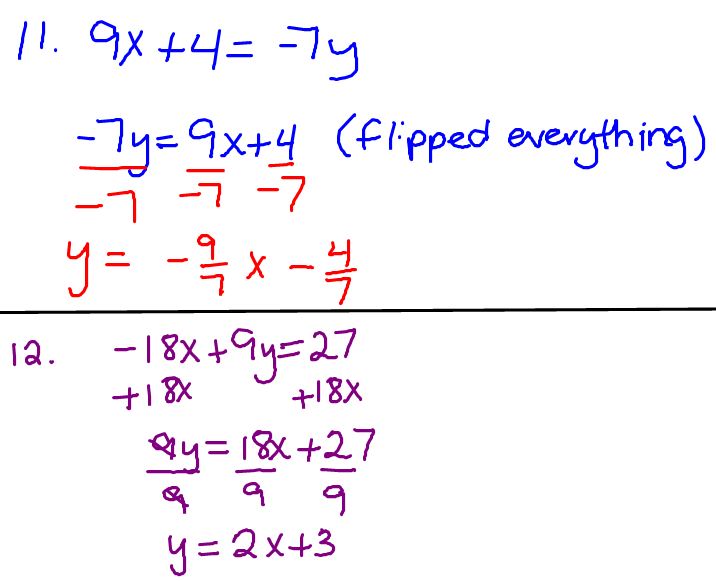 11. 9x+4= -7y
-7y=9x+4 (flipped everything)
-7 -7 -7
y= -9/7 x - 4/7
12. -18x+9y=27
+18x +18x
9y=18x+27
9 9 9
y=2x+3